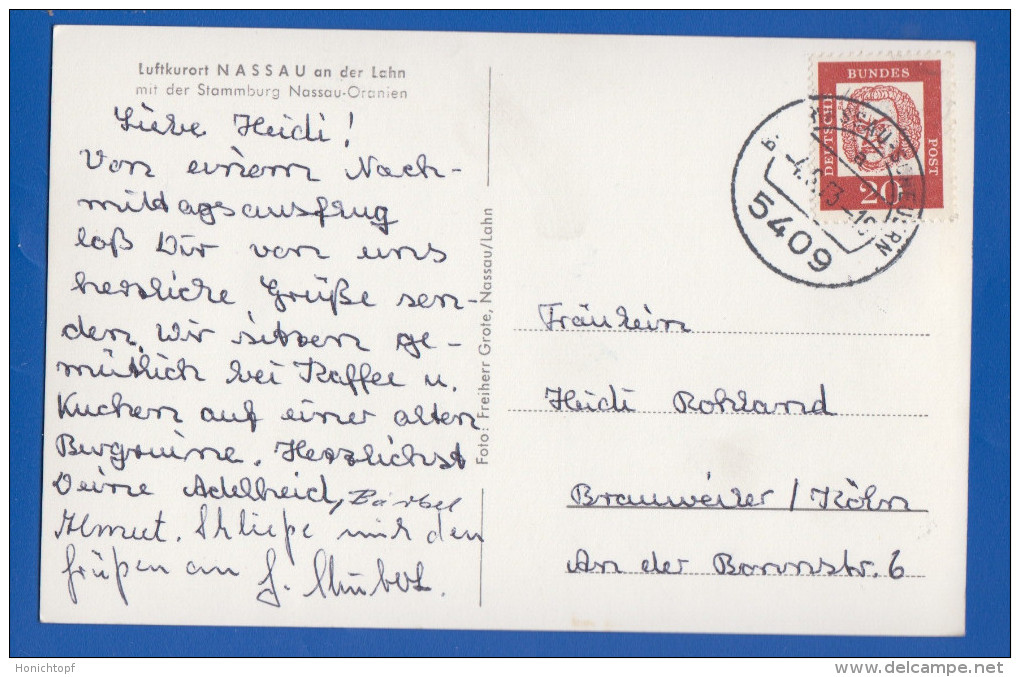 Luftkurort NASSAU an der Lahn
mit der Stammburg Nassau-Oranien
Liebe Heidi!
Von einem Nach-
mittagsausflug
laß Dir von uns
herzliche Grüße sen-
den. Wir sitzen ge-
mütlich bei Kaffee u.
Kuchen auf einer alten
Burgruine. Herzlichst
Deine Adelheid, Bärbel
Helmut. Schließe mich den
Grüßen an
Foto: Freiherr Grote, Nassau/Lahn
DEUTSCHE
BUNDES
POST
20
5409
Fräulein
Heidi Rohland
Brauweiler / Köln
An der Bonnstr. 6
Honichtopf
www.delcampe.net